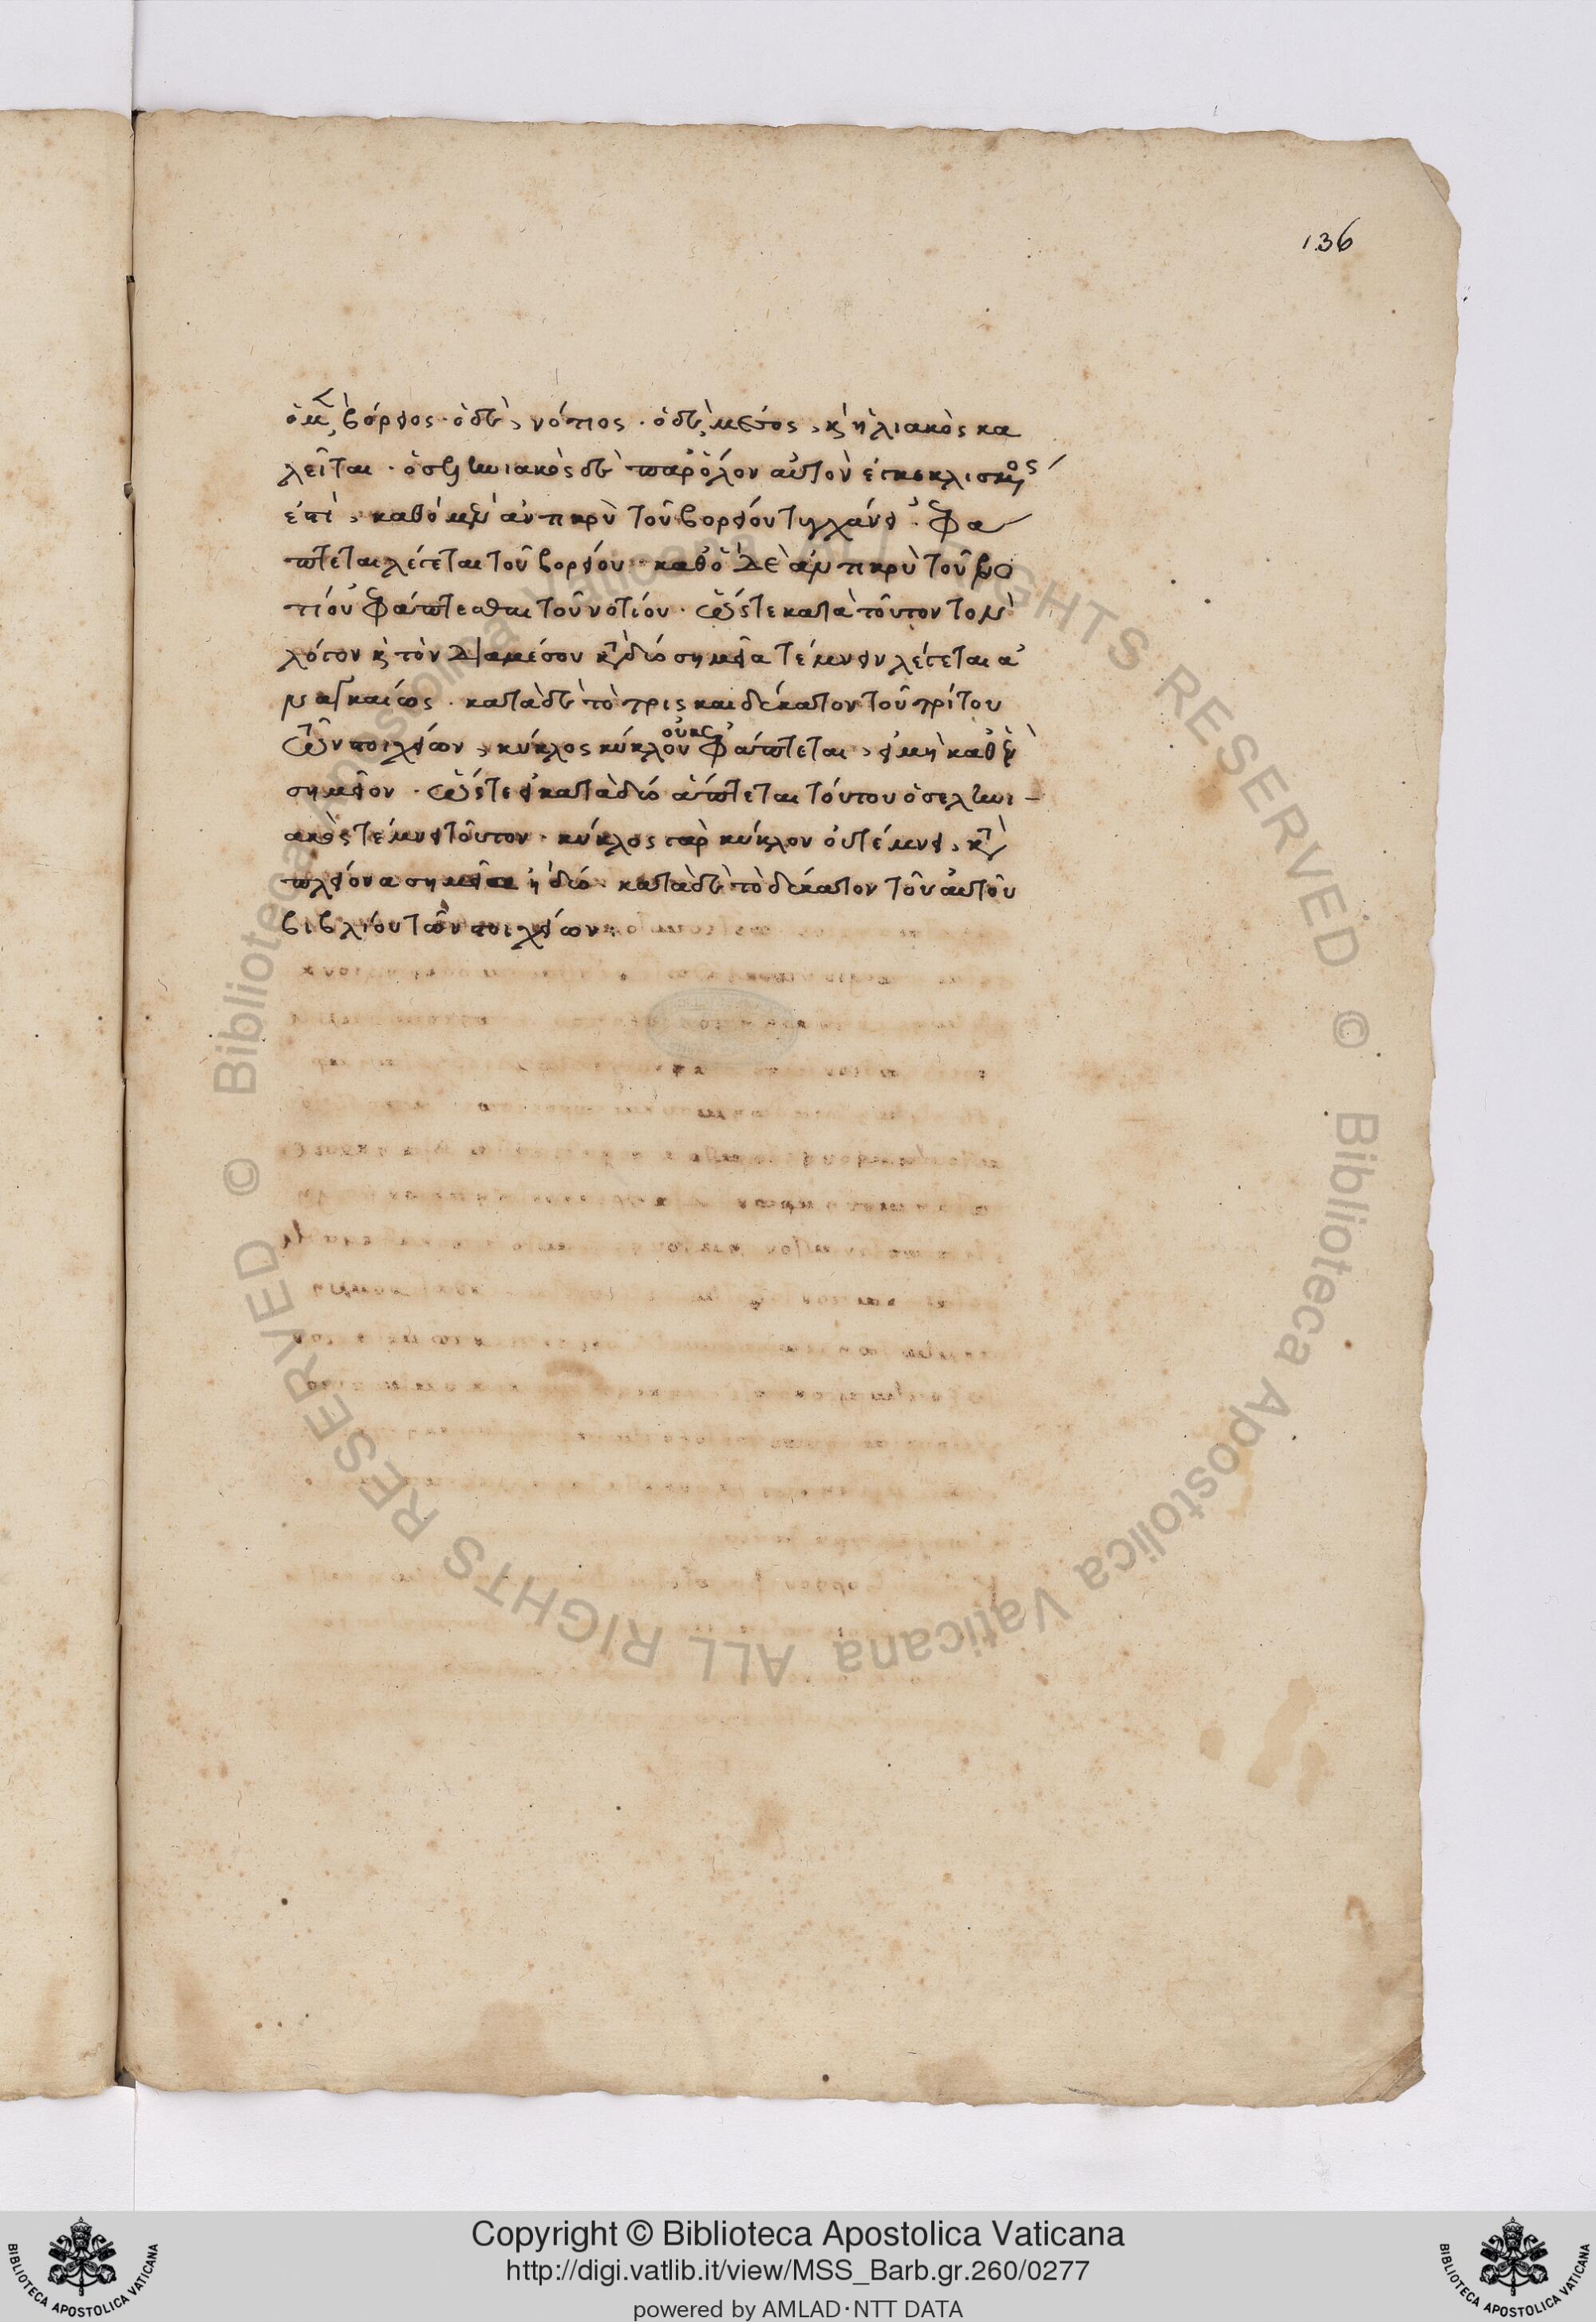 136
ὁ μὲν, βόρειος · ὁ δὲ, νότιος · ὁ δὲ, μέσος, κ ἡλιακὸς κα
λεῖται · ὁ σεληνιακὸς δὲ παρ' ὅλον αὐτὸν ἐγκεκλισμένος
ἐπὶ, καθὸ μὲν ἀντικρὺ τοῦ βορείου τυγχάνει · ἐφά
πτεται λέγεται τοῦ βορείου · καθὸ δὲ ἀντικρὺ τοῦ νο
τίου ἐφάπτεσθαι τοῦ νοτίου · ὥστε κατὰ τοῦτον τὸν
λόγον κ τὸν διαμέσου κατὰ δύο σημεῖα τέμνειν λέγεται ἀ
ναγκαίως · κατὰ δὲ τὸ τρισκαιδέκατον τοῦ τρίτου
τῶν στοιχείων, κύκλος κύκλου οὐκ ἐφάπτεται, εἰ μὴ καθ' ἓν
σημεῖον · ὥστε εἰ κατὰ δύο ἅπτεται τούτου ὁ σεληνι-
ακὸς τέμνει τοῦτον · κύκλος γὰρ κύκλον οὐ τέμνει, κατὰ
πλείονα σημεῖα ἢ δύο · κατὰ δὲ τὸ δέκατον τοῦ αὐτοῦ
βιβλίου τῶν στοιχείων :
© Biblioteca Apostolica Vaticana ALL RIGHTS RESERVED © Biblioteca Apostolica Vaticana ALL RIGHTS RESERVED
BIBLIOTECA APOSTOLICA VATICANA
Copyright © Biblioteca Apostolica Vaticana
http://digi.vatlib.it/view/MSS_Barb.gr.260/0277
powered by AMLAD·NTT DATA
BIBLIOTECA APOSTOLICA VATICANA